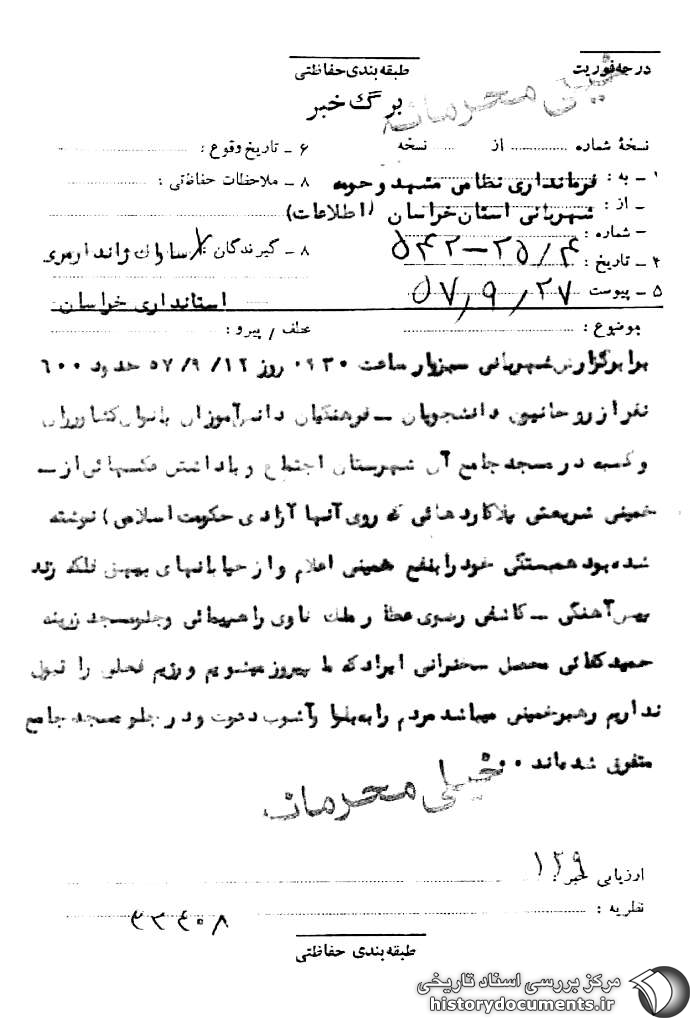 طبقه‌بندی حفاظتی
درجه فوریت
خیلی محرمانه
برگ خبر
نسخهٔ شماره ............ از ..... نسخه
۶ ـ تاریخ وقوع :
۱ ـ به : فرمانداری نظامی مشهد و حومه
۸ ـ ملاحظات حفاظتی :
ـ از : شهربانی استان خراسان (اطلاعات)
ـ شماره : ۵۴۲-۲۵/۴
۸ ـ گیرندگان : ساواک ژاندارمری
۴ ـ تاریخ :
۵ ـ پیوست ۵۷,۹,۲۷
استانداری خراسان
موضوع :
عطف / پیرو :
برابر گزارش شهربانی سبزوار ساعت ۰۹۳۰ روز ۱۲/ ۹/ ۵۷ حدود ۶۰۰
نفر از روحانیون دانشجویان ـ فرهنگیان دانش‌آموزان بانوان کشاورزان
و کسبه در مسجد جامع آن شهرستان اجتماع و با داشتن عکسهائی از ـ
خمینی شریعتی پلاکاردهائی که روی آنها آزادی حکومت اسلامی) نوشته
شده بود همبستگی خود را بنفع خمینی اعلام و از خیابانهای بیهق فلکه زند
کاشفی راهپیمائی و جلو مسجد
حمید محصل سخنرانی ایراد که ما پیروز میشویم و رژیم فعلی را قبول
نداریم رهبر خمینی میباشد مردم را به بلوا و آشوب دعوت و در جلو مسجد جامع
متفرق شده‌اند ۰۰
خیلی محرمانه
ارزیابی خبر : ۱۲۹
نظریه :
طبقه‌بندی حفاظتی
مرکز بررسی اسناد تاریخی
historydocuments.ir